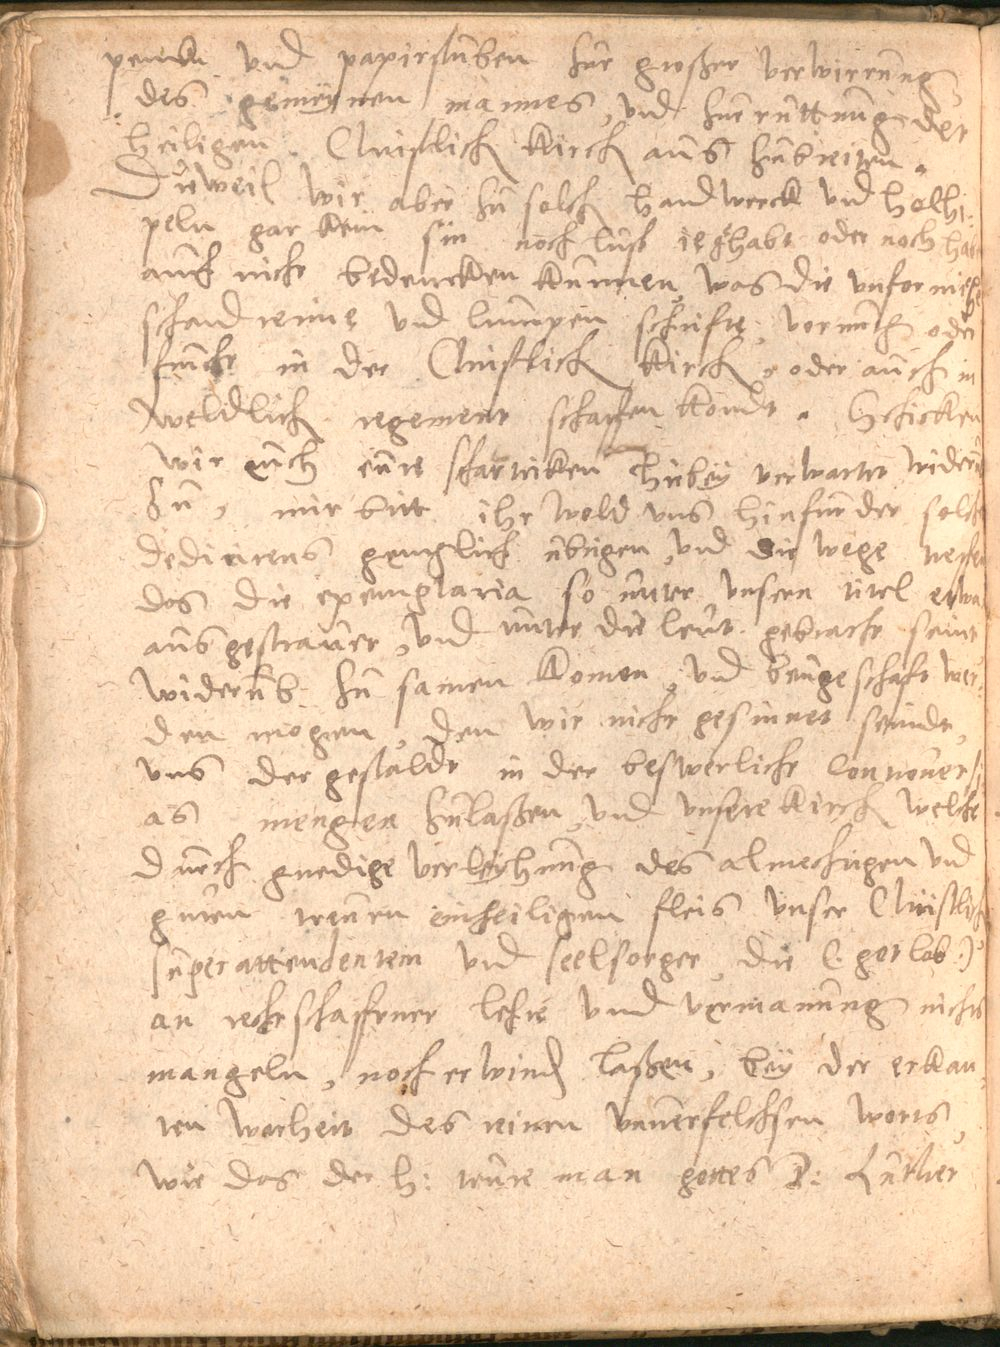 und papirstuben zur großer verwirrung
des gemeynen mannes, und zur ruttung der
heiligen Christlich Kirch aus zubreiten.
Dieweil wir aber zu solch handwerck und holhi-
peln gar kein sin noch lust ie gehabt oder noch hab
auch nicht bedencken kunnen, was die unformich
schand reime und lumpen schrifte, vornuch oder
frucht in der Christlich Kirch, oder auch in
weldlich regement schaffen kondt. Schicken
wir euch eure scharteken hiebey verwartet widerum
zu, mit bitt ihr wold uns hinfurder solches
dedicirens genzlich ubrigen, und die wege
das die exemplaria so unter unsern titel etwa
ausgestrauet, und unter die leut gebracht seint
widerumb zu samen komen, und beingeschaft wer-
den mogen, den wir nicht gesinnet seindt,
uns der gestaldt in der beswerlicht Controversi
as mengen zulaßen, und unsere Kirch welche
durch gnedige verleyhung des almechtigen und
guten treuen einheiligem fleis unser Christlich
superattendenten und seelsorger, die (: got lob :)
an rechtschaffener lehre und vermanung nichts
mangeln, noch erwinden laßen, bey der erkan-
ten warheit des reinen unverfelchsen worts,
wie das der h: teure man gottes D: Luther